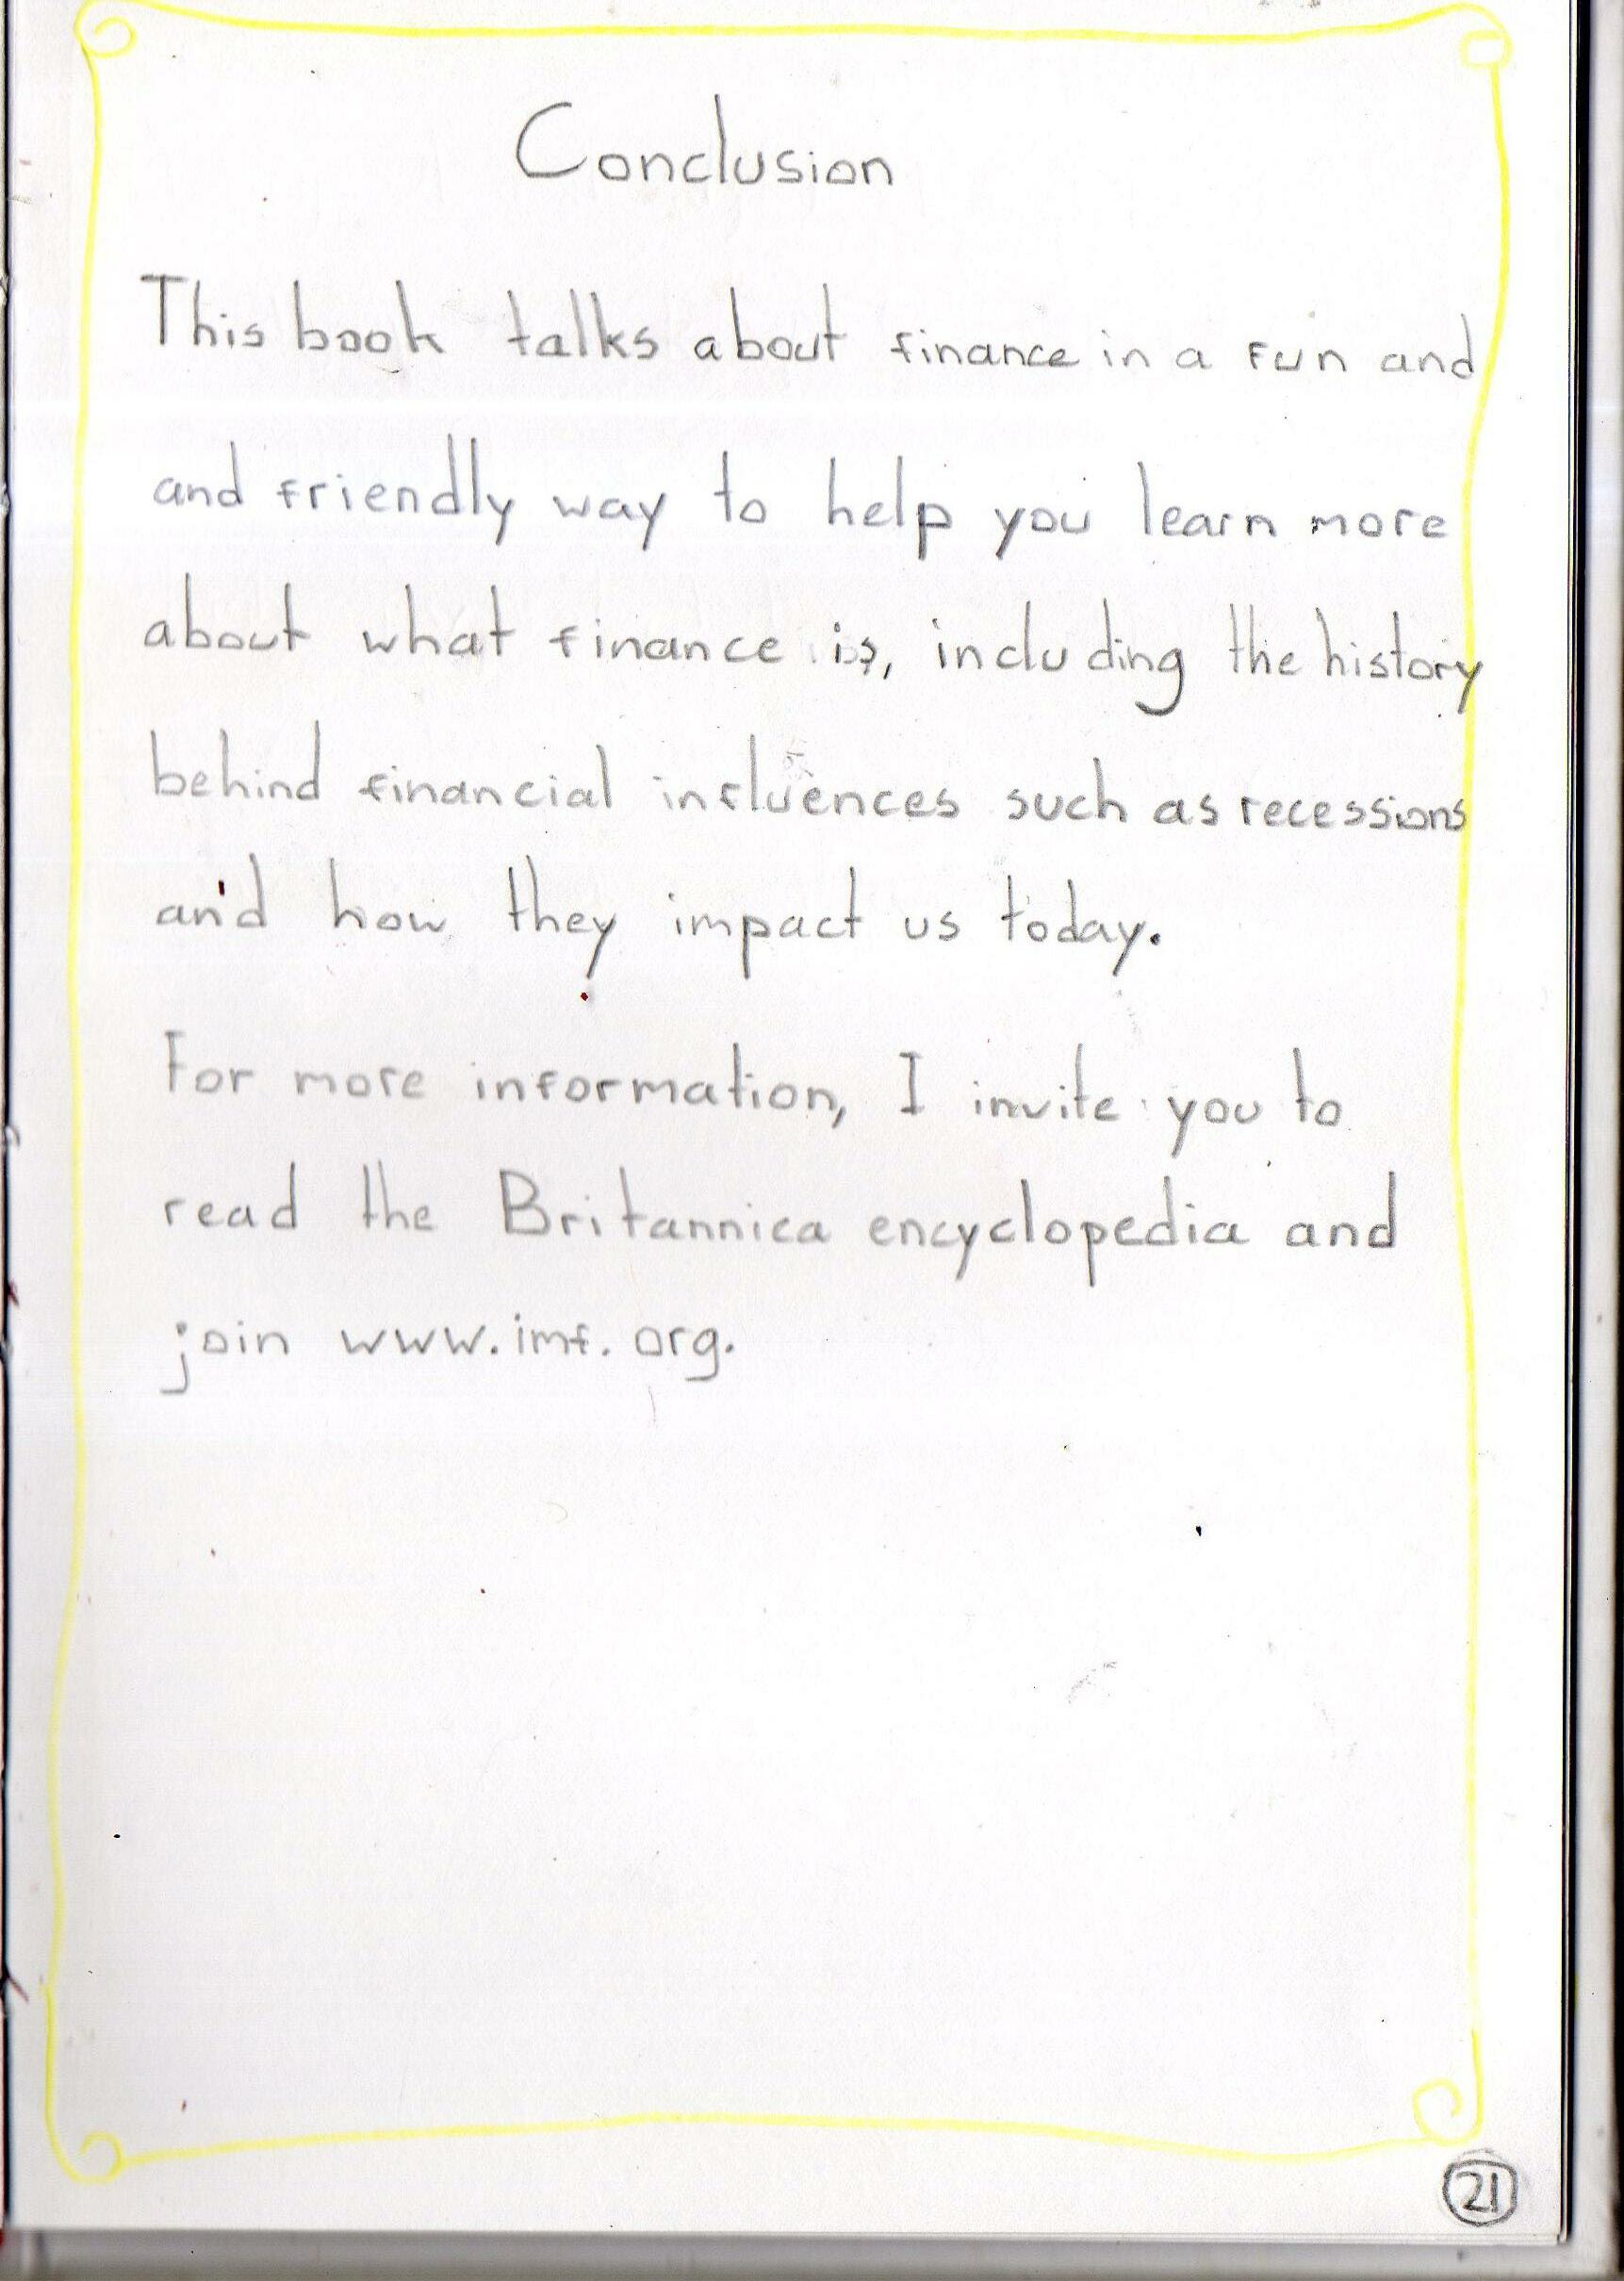 Conclusion
This book talks about finance in a fun and
and friendly way to help you learn more
about what finance is, including the history
behind financial influences such as recessions
and how they impact us today.
For more information, I invite you to
read the Britannica encyclopedia and
join www.imf.org.
21